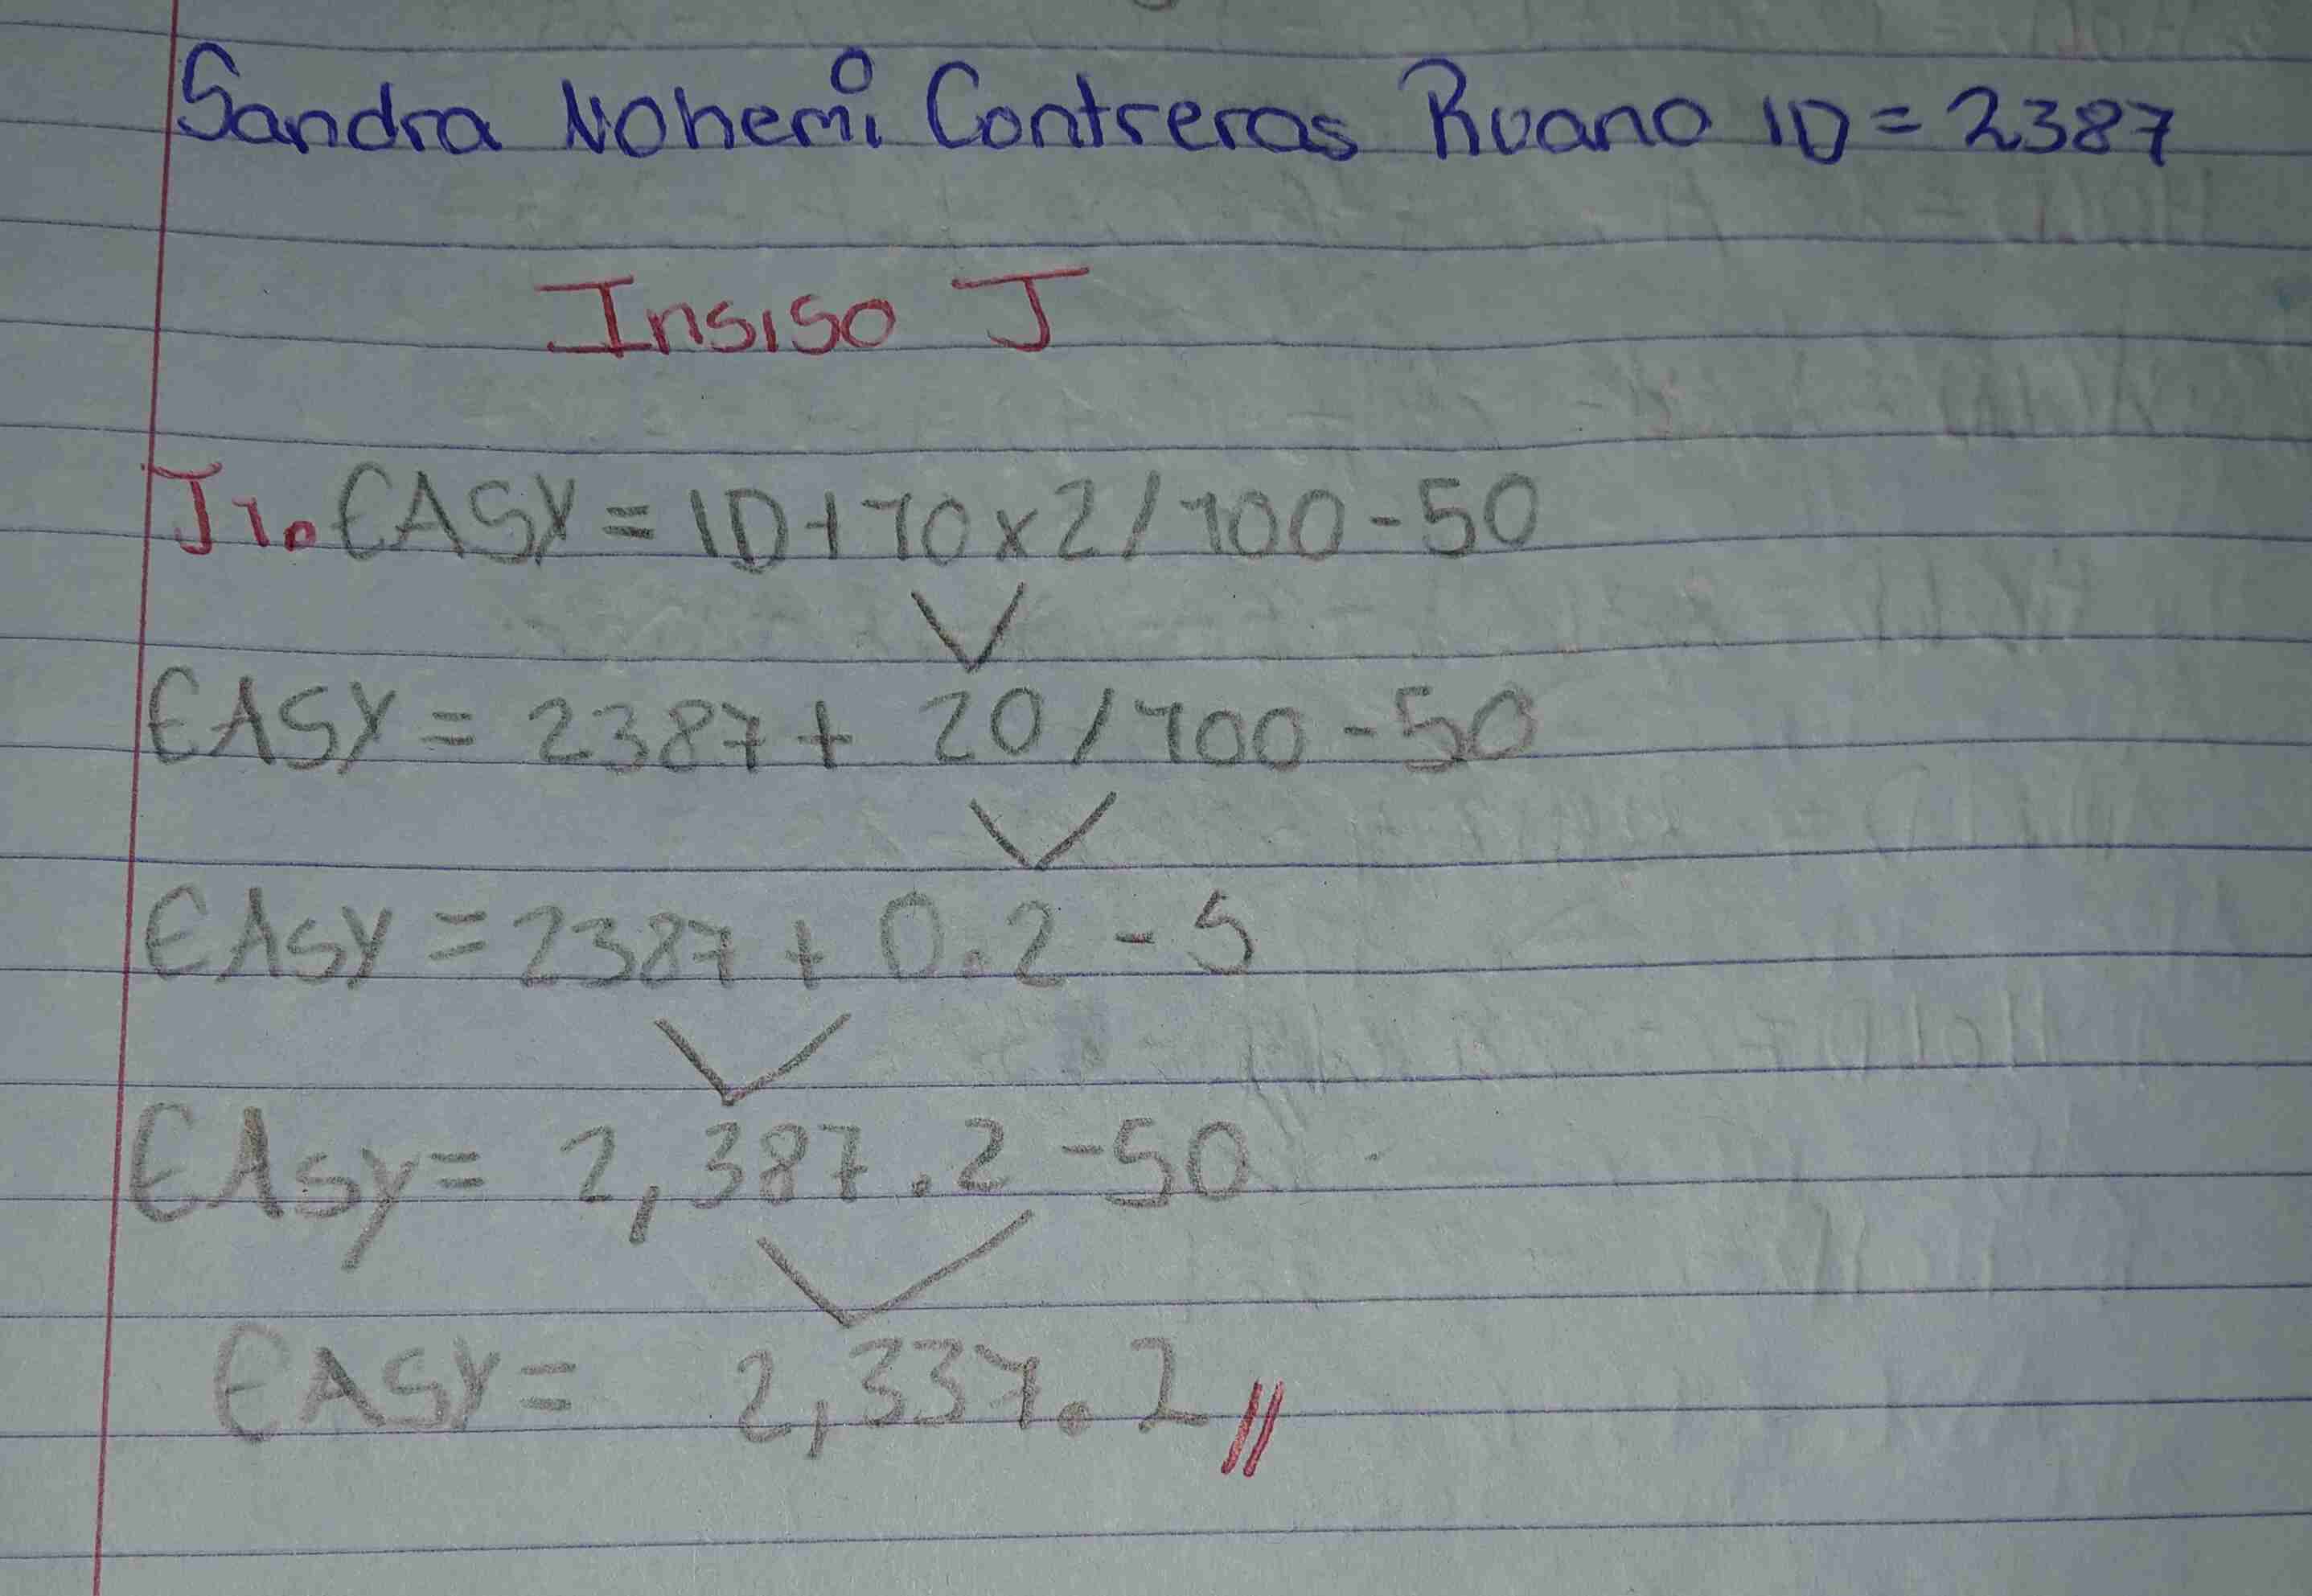 Sandra Nohemi Contreras Ruano ID = 2387
Insiso J
J1. EASY = ID + 10 x 2 / 100 - 50
EASY = 2387 + 20 / 100 - 50
EASY = 2387 + 0.2 - 5
EASY = 2,387.2 - 50
EASY = 2,337.2 //